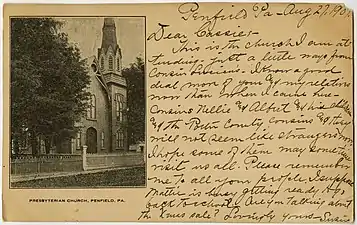 Penfield Pa - Aug 29, 190
Dear Cassie:-
This is the church I am at
tending just a little ways from
Cousin I know a good
deal more of my relations
now than when I came here -
Cousins Nellie & Albert & his
& the Potter County cousins &
will not seem like strangers
I hope some of them may sometime
visit us all. Please remember
me to all your people. I suppose
Mattie is busy getting ready to go
back to school. Are you talking about
the sale? Lovingly yours - Susie
PRESBYTERIAN CHURCH, PENFIELD, PA.